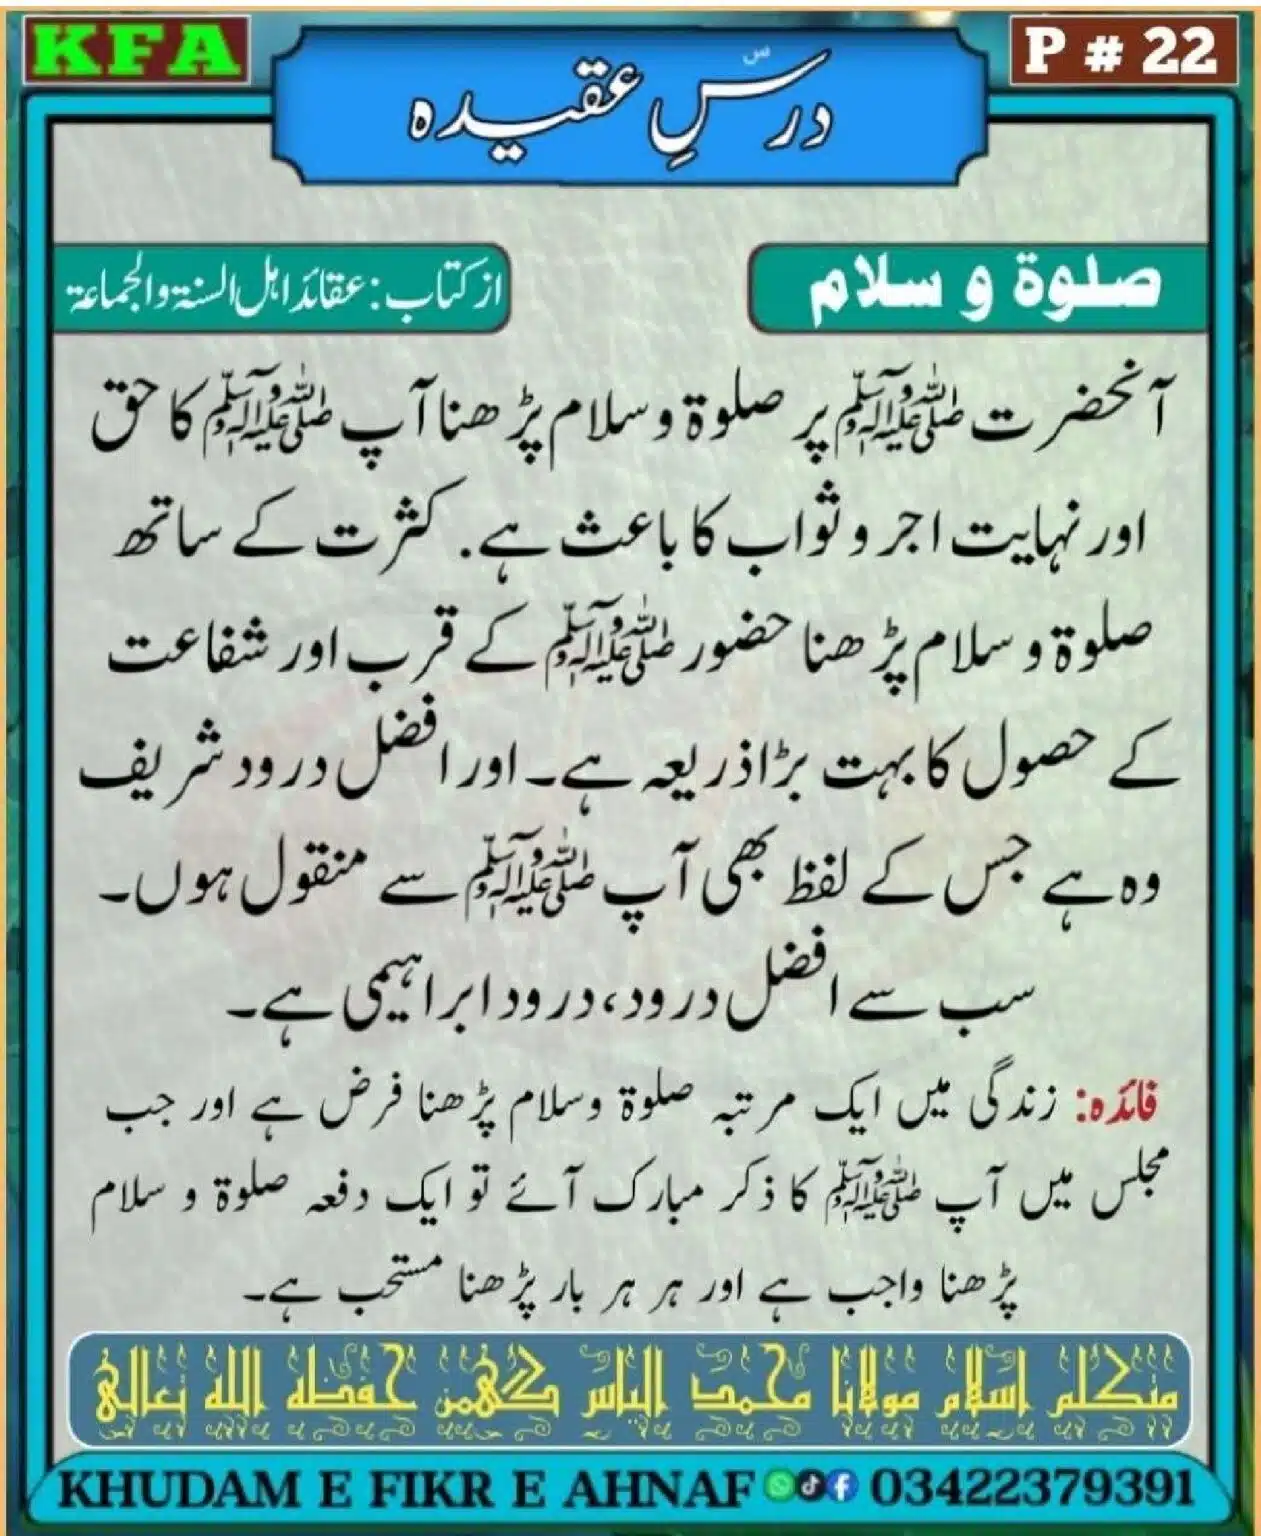 KFA
درسِ عقیدہ
P # 22
صلوۃ و سلام
از کتاب: عقائد اہل السنۃ والجماعۃ
آنحضرت ﷺ پر صلوۃ و سلام پڑھنا آپ ﷺ کا حق
اور نہایت اجر و ثواب کا باعث ہے. کثرت کے ساتھ
صلوۃ و سلام پڑھنا حضور ﷺ کے قرب اور شفاعت
کے حصول کا بہت بڑا ذریعہ ہے۔ اور افضل درود شریف
وہ ہے جس کے لفظ بھی آپ ﷺ سے منقول ہوں۔
سب سے افضل درود، درود ابراہیمی ہے۔
فائدہ: زندگی میں ایک مرتبہ صلوۃ وسلام پڑھنا فرض ہے اور جب
مجلس میں آپ ﷺ کا ذکر مبارک آئے تو ایک دفعہ صلوۃ و سلام
پڑھنا واجب ہے اور ہر ہر بار پڑھنا مستحب ہے۔
متکلم اسلام مولانا محمد الیاس گھمن حفظہ اللہ تعالیٰ
KHUDAM E FIKR E AHNAF 03422379391